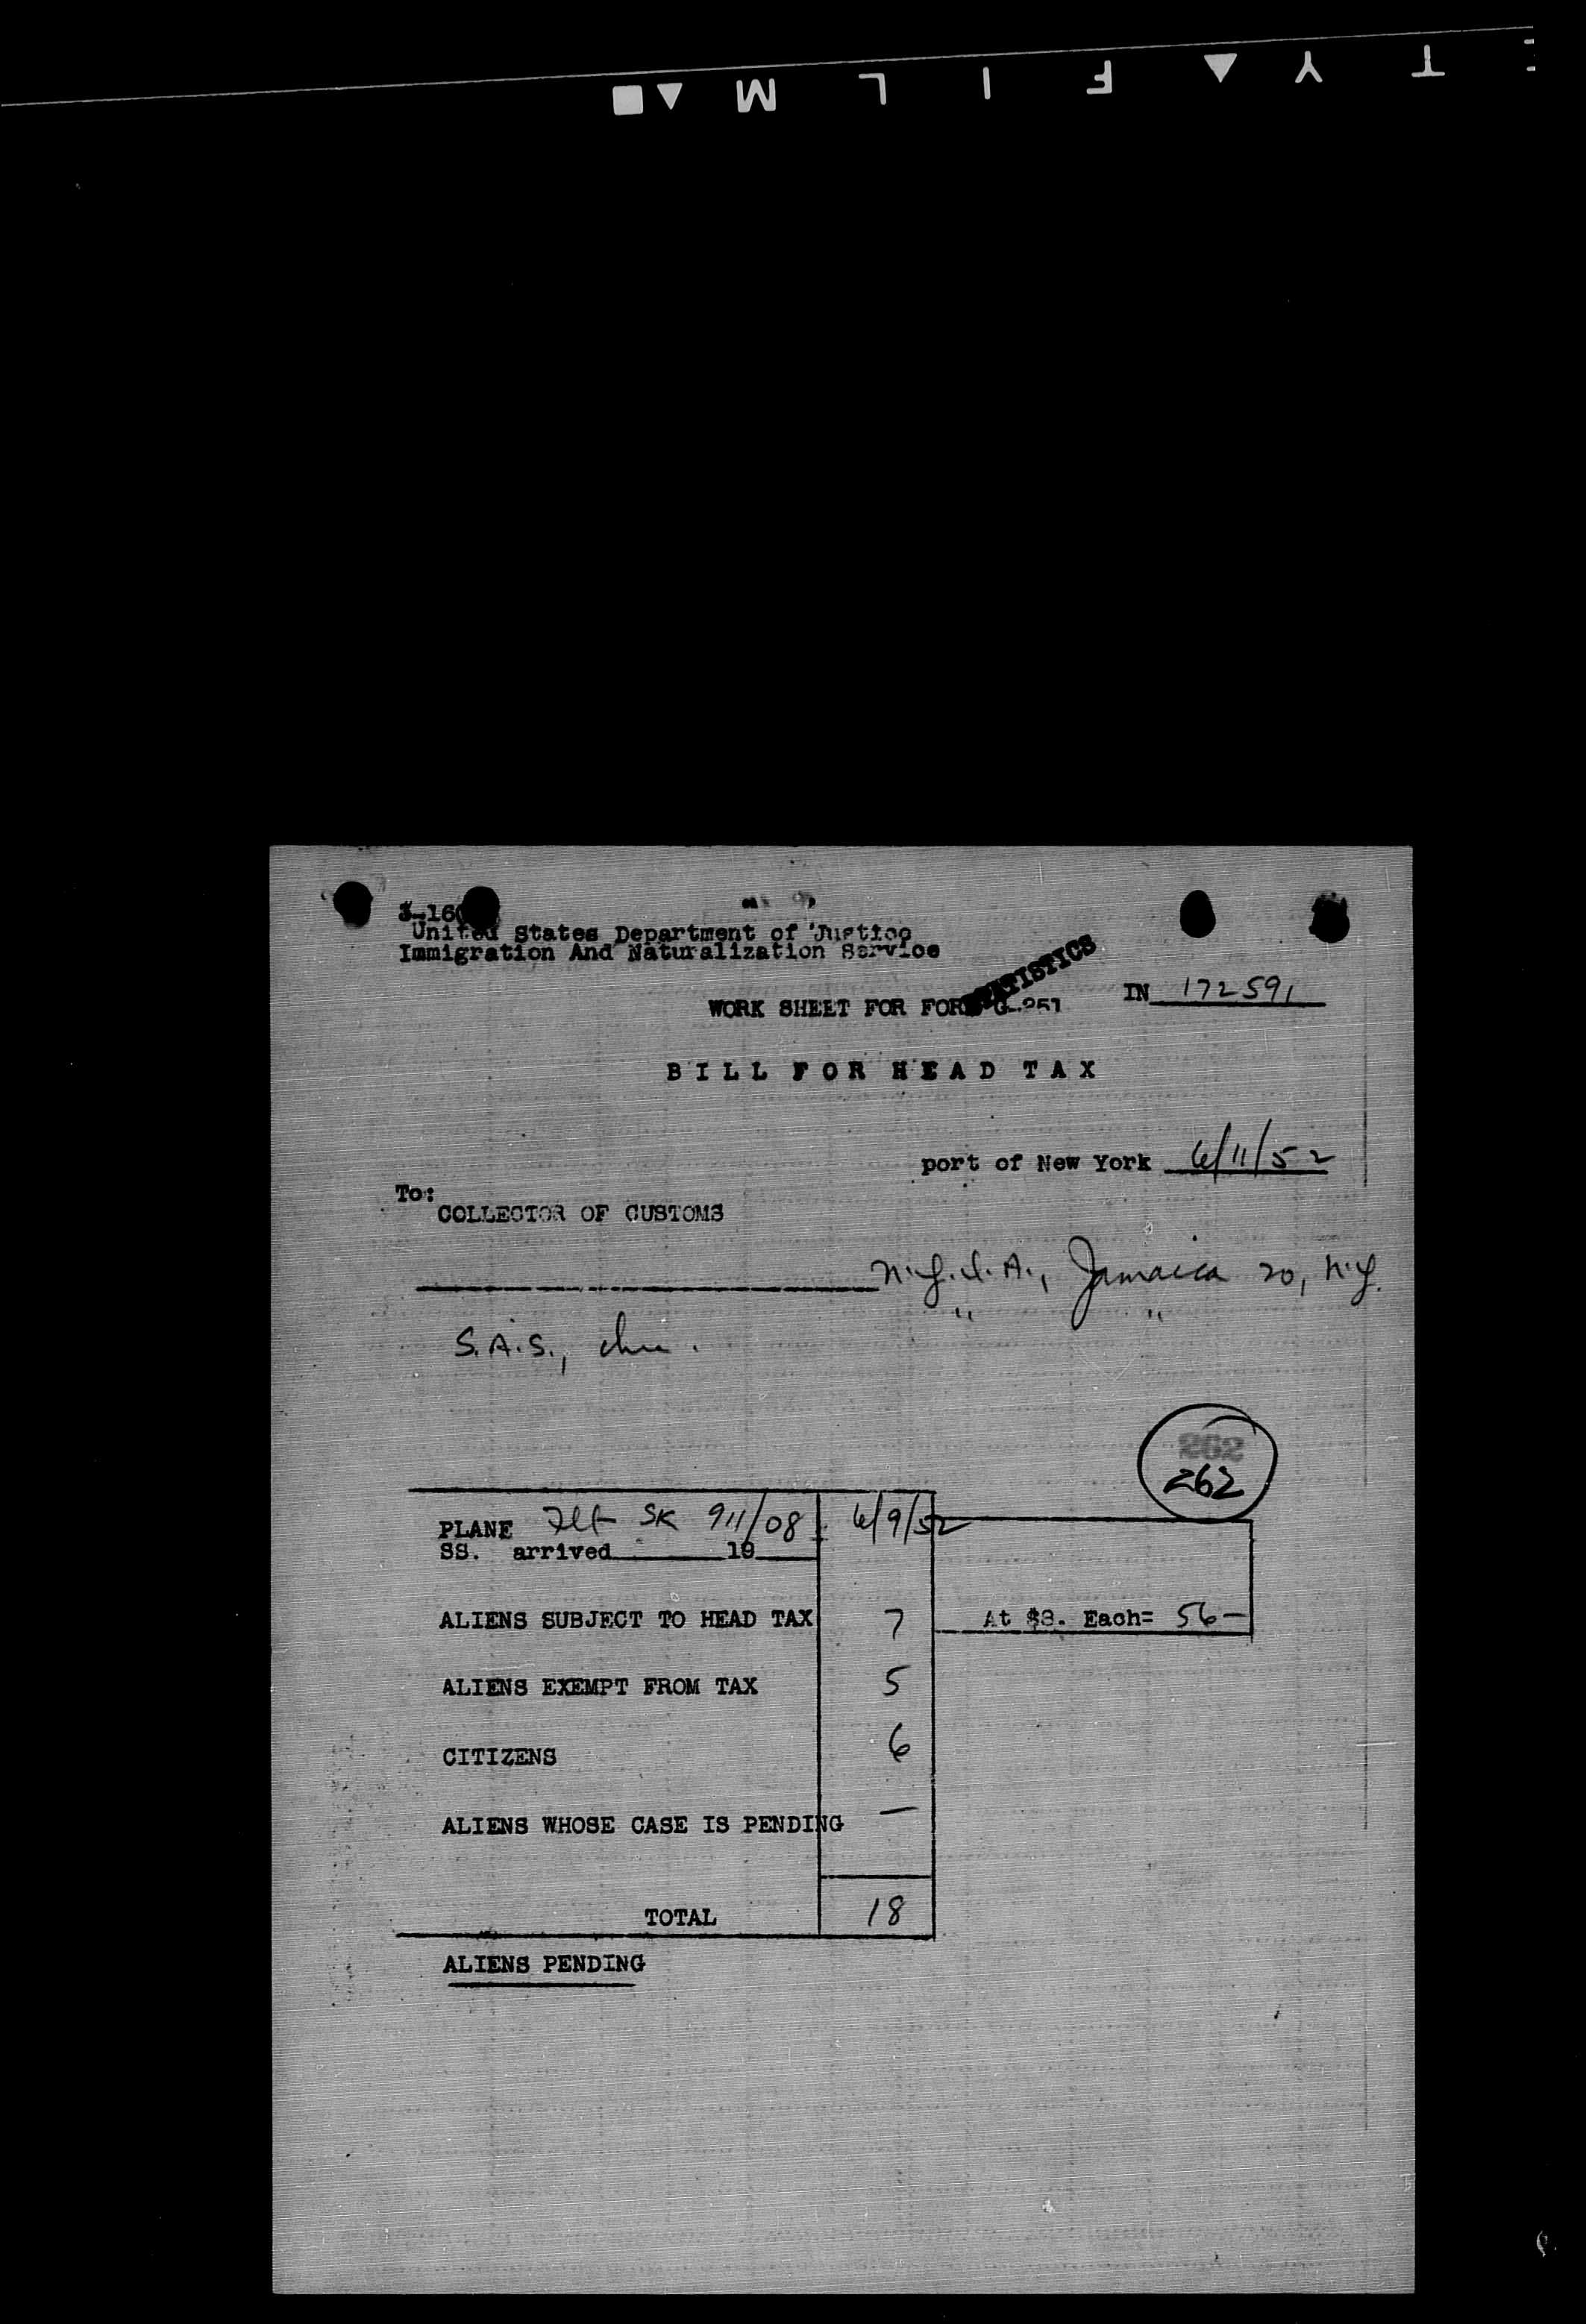 T Y F I L M
3-16
United States Department of Justice
Immigration And Naturalization Service
STATISTICS
WORK SHEET FOR FORM G-251
IN 172591
BILL FOR HEAD TAX
port of New York 6/11/52
To:
COLLECTOR OF CUSTOMS
N.Y.I.A., Jamaica 20, N.Y.
" "
S.A.S., Inc.
262
262
PLANE Flt SK 911/08 6/9/52
SS. arrived 19
ALIENS SUBJECT TO HEAD TAX 7 At $8. Each= 56-
ALIENS EXEMPT FROM TAX 5
CITIZENS 6
ALIENS WHOSE CASE IS PENDING —
TOTAL 18
ALIENS PENDING